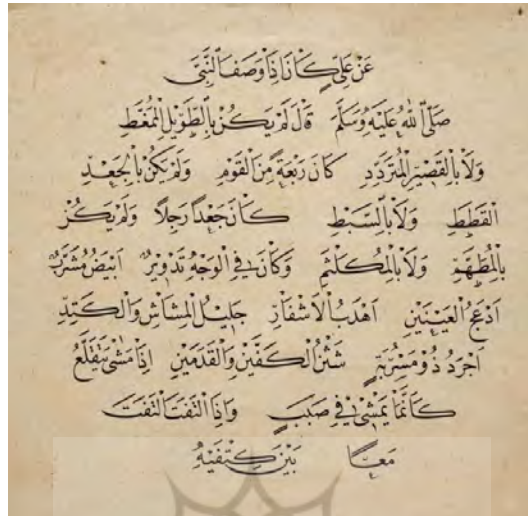 عَنْ عَلِيٍّ كَانَ إِذَا وَصَفَ النَّبِيَّ
صَلَّى اللهُ عَلَيْهِ وَسَلَّمَ قَالَ لَمْ يَكُنْ بِالطَّوِيلِ الْمُمَّغِطِ
وَلَا بِالْقَصِيرِ الْمُتَرَدِّدِ كَانَ رَبْعَةً مِنَ الْقَوْمِ وَلَمْ يَكُنْ بِالْجَعْدِ
الْقَطَطِ وَلَا بِالسَّبْطِ كَانَ جَعْدًا رَجِلًا وَلَمْ يَكُنْ
بِالْمُطَهَّمِ وَلَا بِالْمُكَلْثَمِ وَكَانَ فِي الْوَجْهِ تَدْوِيرٌ أَبْيَضُ مُشْرَبٌ
أَدْعَجُ الْعَيْنَيْنِ أَهْدَبُ الْأَشْفَارِ جَلِيلُ الْمُشَاشِ وَالْكَتِدِ
أَجْرَدُ ذُو مَسْرُبَةٍ شَثْنُ الْكَفَّيْنِ وَالْقَدَمَيْنِ إِذَا مَشَى يَتَقَلَّعُ
كَأَنَّمَا يَمْشِي فِي صَبَبٍ وَإِذَا الْتَفَتَ الْتَفَتَ
مَعًا بَيْنَ كَتِفَيْهِ